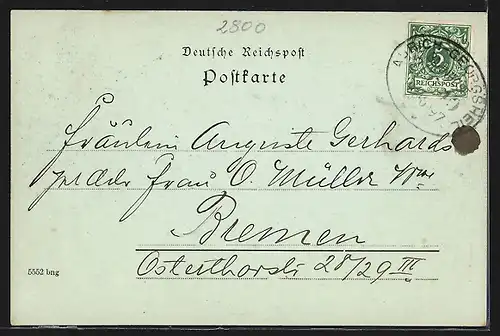 2800
Deutsche Reichspost
Postkarte
5
REICHSPOST
97
Fräulein Auguste Gerhards
Frau O Müller Wwe
Bremen
28/29 III
5552 bng